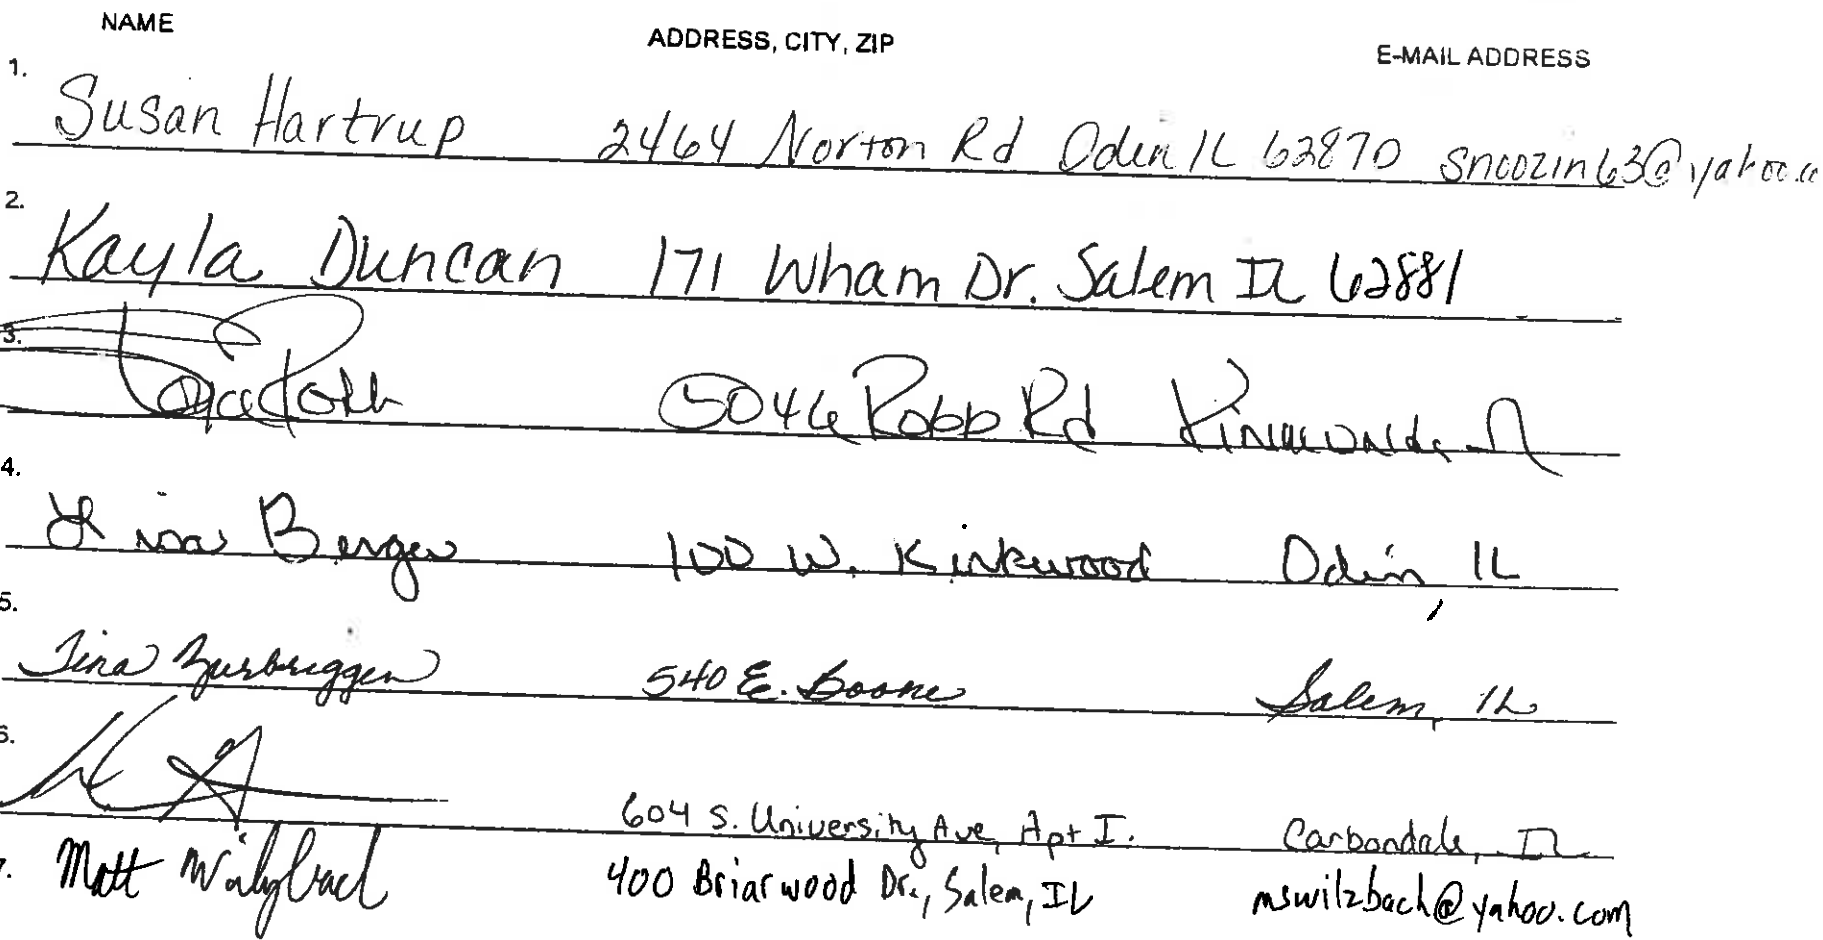 NAME ADDRESS, CITY, ZIP E-MAIL ADDRESS
1. Susan Hartrup 2464 Norton Rd Odin IL 62870 snoozin63@yahoo.c
2. Kayla Duncan 171 Wham Dr. Salem IL 62881
3. 5046 Robb Rd
4. Lisa Berger 100 W. Kinkwood Odin, IL
5. Tina Zurbriggen 540 E. Boone Salem, IL
6. 604 S. University Ave, Apt I. Carbondale, IL
7. Matt Wilzbach 400 Briarwood Dr., Salem, IL mswilzbach@yahoo.com